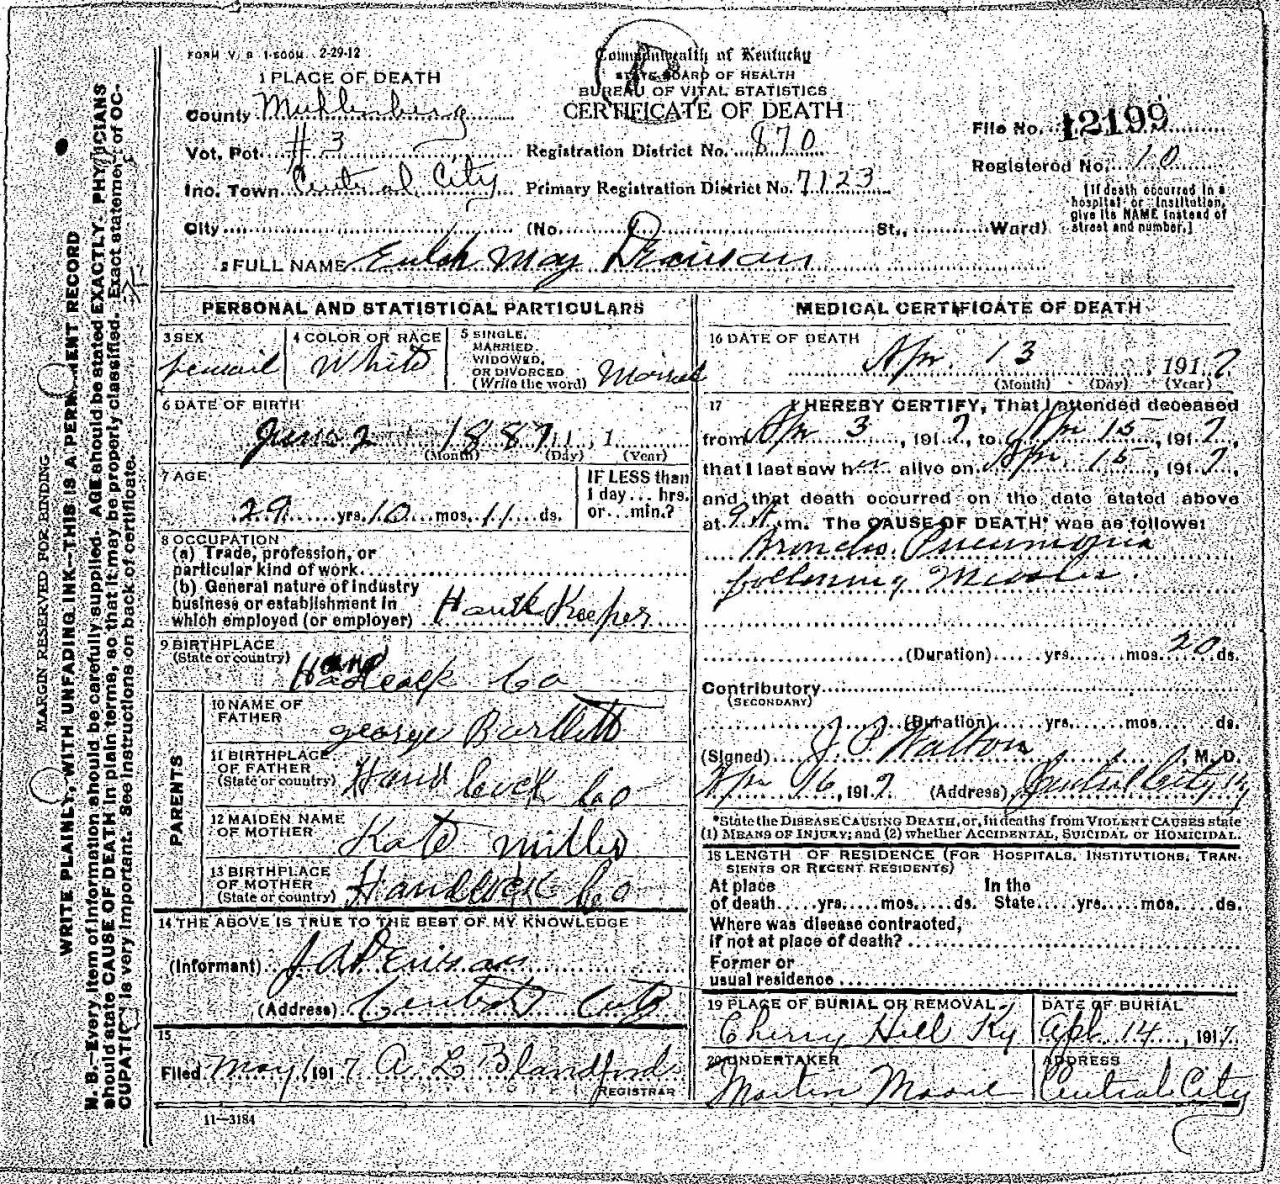 FORM V. S. 1-500M. 2-29-12
Commonwealth of Kentucky
STATE BOARD OF HEALTH
BUREAU OF VITAL STATISTICS
CERTIFICATE OF DEATH
File No. 12199
Registered No. 10
[If death occurred in a hospital or institution, give its NAME instead of street and number.]
1 PLACE OF DEATH
County Muhlenberg
Vot. Pct. #3 Registration District No. 870
Inc. Town Central City Primary Registration District No. 7123
City (No. St., Ward)
2 FULL NAME Eulah May
PERSONAL AND STATISTICAL PARTICULARS
3 SEX
femail
4 COLOR OR RACE
White
5 SINGLE, MARRIED, WIDOWED, OR DIVORCED (Write the word)
6 DATE OF BIRTH
June 2 1887, 1
(Month) (Day) (Year)
7 AGE
29 yrs. 10 mos. 11 ds.
IF LESS than 1 day... hrs. or... min.?
8 OCCUPATION
(a) Trade, profession, or particular kind of work
(b) General nature of industry business or establishment in which employed (or employer) Keeper
9 BIRTHPLACE
(State or country) Co
PARENTS
10 NAME OF FATHER
george Bartlett
11 BIRTHPLACE OF FATHER
(State or country) Co
12 MAIDEN NAME OF MOTHER
Kate Miller
13 BIRTHPLACE OF MOTHER
(State or country) Co
14 THE ABOVE IS TRUE TO THE BEST OF MY KNOWLEDGE
(Informant) J A
(Address) Central City
15
Filed May 1 1917 A. L. Blandford
REGISTRAR
11—3184
MEDICAL CERTIFICATE OF DEATH
16 DATE OF DEATH
Apr. 13, 1917
(Month) (Day) (Year)
17 I HEREBY CERTIFY, That I attended deceased
from Apr 3, 1917, to Apr 15, 1917,
that I last saw her alive on Apr 15, 1917,
and that death occurred on the date stated above
at 9 A m. The CAUSE OF DEATH* was as follows:
Broncho Pneumonia
following Measles
(Duration) yrs. mos. 20 ds.
Contributory
(SECONDARY)
(Duration) yrs. mos. ds.
(Signed) J. P. Walton, M. D.
Apr 16, 1917 (Address) Central City Ky
*State the DISEASE CAUSING DEATH, or, in deaths from VIOLENT CAUSES state
(1) MEANS OF INJURY; and (2) whether ACCIDENTAL, SUICIDAL or HOMICIDAL.
18 LENGTH OF RESIDENCE (FOR HOSPITALS, INSTITUTIONS, TRANSIENTS OR RECENT RESIDENTS)
At place of death yrs. mos. ds. In the State yrs. mos. ds.
Where was disease contracted, if not at place of death?
Former or usual residence
19 PLACE OF BURIAL OR REMOVAL
Cherry Hill Ky
DATE OF BURIAL
Apl. 14, 1917
20 UNDERTAKER
Martin Moore
ADDRESS
Central City
MARGIN RESERVED FOR BINDING
WRITE PLAINLY, WITH UNFADING INK—THIS IS A PERMANENT RECORD
N. B.—Every item of information should be carefully supplied. AGE should be stated EXACTLY. PHYSICIANS
should state CAUSE OF DEATH in plain terms, so that it may be properly classified. Exact statement of OC-
CUPATION is very important. See instructions on back of certificate.